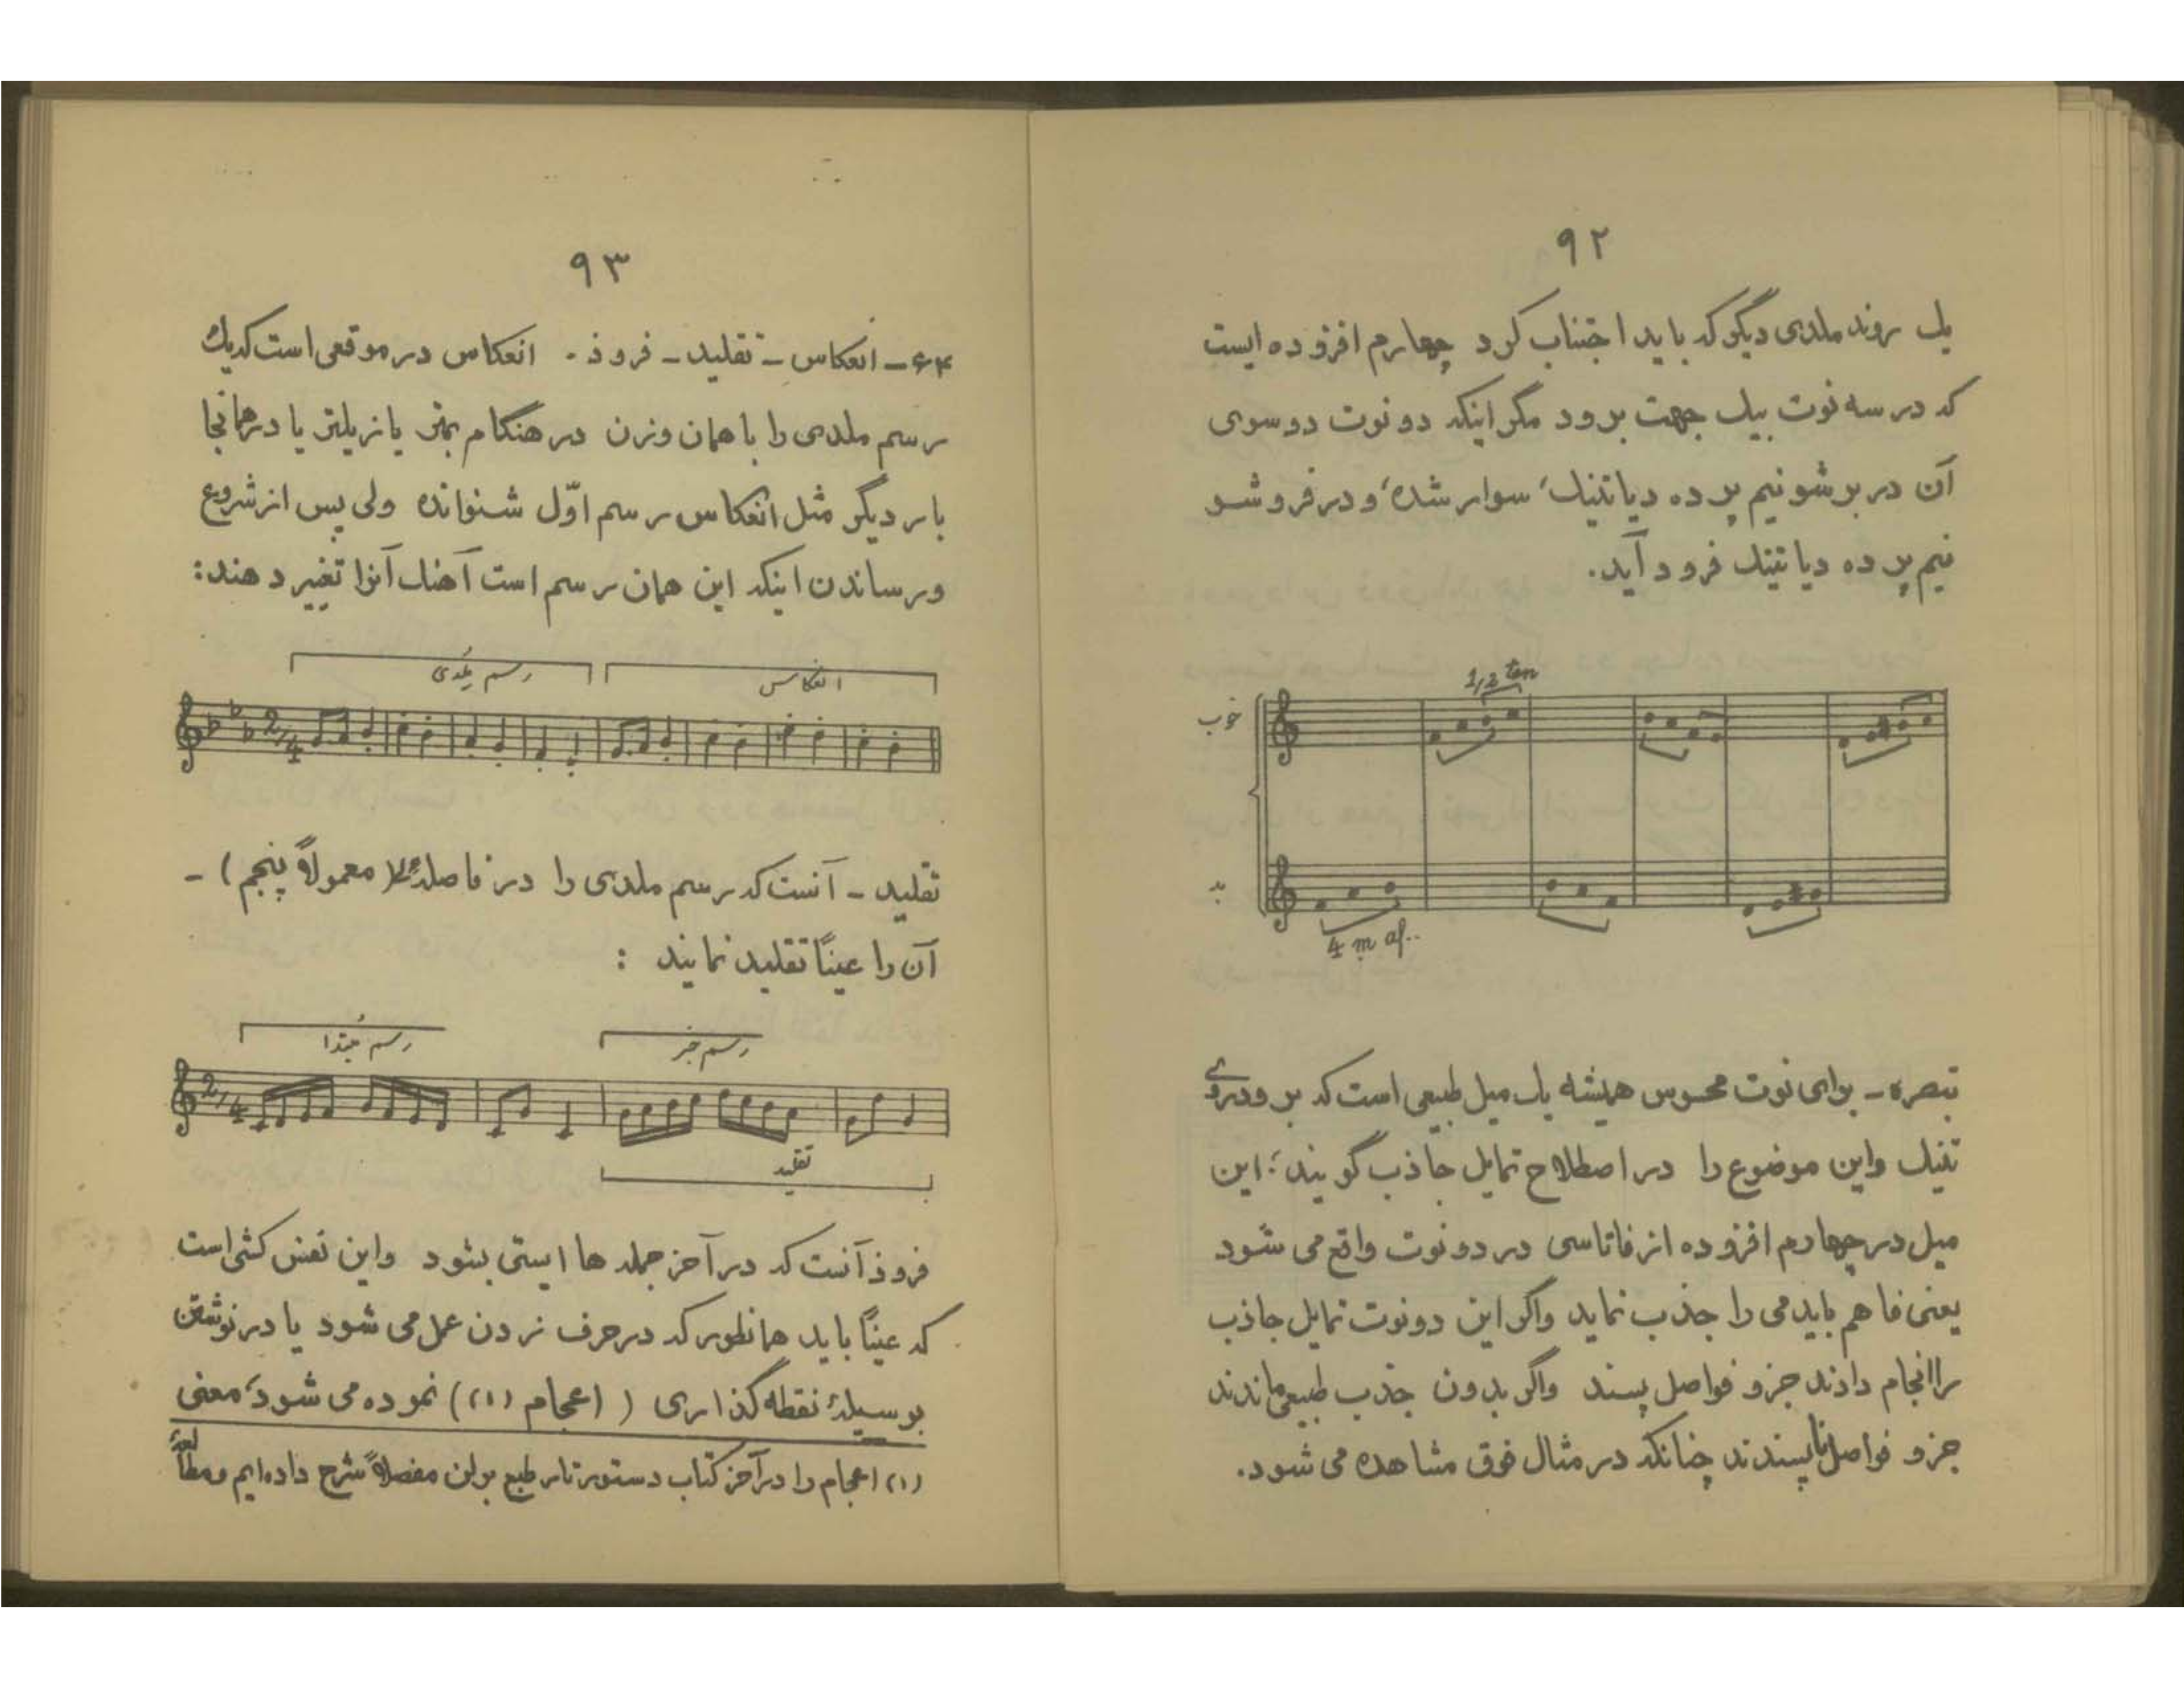 ۹۲
یک روند ملدی دیگر که باید اجتناب کرد چهارم افزوده ایست
که در سه نوت بیک جهت برود مگر اینکه دو نوت دو سوی
آن در برشو نیم پرده دیاتنیک، سوار شده، و در فروشو
نیم پرده دیاتنیک فرود آید.
1/2 ton
خوب
بد
4 m af..
تبصره - برای نوت محسوس همیشه یک میل طبیعی است که برود روی
تنیک واین موضوع را در اصطلاح تمایل جاذب گویند؛ این
میل در چهارم افزوده از فا تا سی در دو نوت واقع می شود
یعنی فا هم باید می را جذب نماید واگر این دو نوت تمایل جاذب
را انجام دادند جزو فواصل پسند واگر بدون جذب طبیعی ماندند
جزو فواصل ناپسندند چنانکه در مثال فوق مشاهده می شود.
۹۳
۶۴- انعکاس - تقلید - فرود . انعکاس در موقعی است که یک
رسم ملدی را با همان وزن در هنگام بمتر یا زیلتر یا در همانجا
بار دیگر مثل انعکاس رسم اوّل شنوانده ولی پس از شروع
ورساندن اینکه این همان رسم است آهنگ آنرا تغییر دهند:
رسم ملدی
انعکاس
2/4
تقلید - آنست که رسم ملدی را در فاصلهٔ (معمولاً پنجم) -
آن را عیناً تقلید نمایند :
رسم مبتدا
رسم خبر
2/4
تقلید
فروذ آنست که در آخر جمله ها ایستی بشود واین نفس کشی است
که عیناً باید همانطور که در حرف زدن عمل می شود یا در نوشتن
بوسیلهٔ نقطه گذاری ( اعجام (۱)) نموده می شود، معنی
(۱) اعجام را در آخر کتاب دستور تار طبع برلن مفصلاً شرح داده ایم و مطالعهٔ